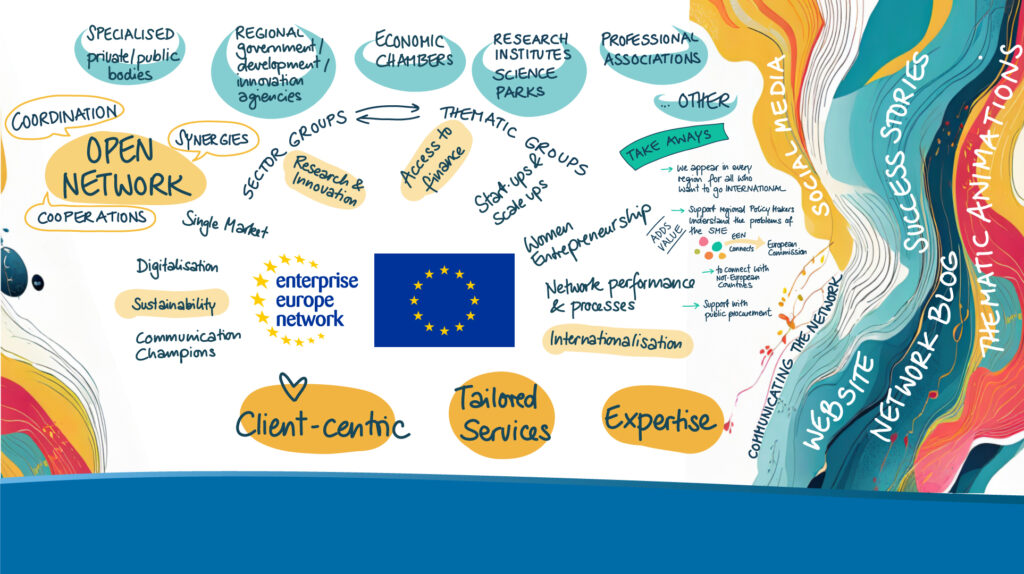 SPECIALISED
private/public
bodies
REGIONAL
government/
development/
innovation
agiencies
ECONOMIC
CHAMBERS
RESEARCH
INSTITUTES
SCIENCE
PARKS
PROFESSIONAL
ASSOCIATIONS
... OTHER
COORDINATION
SYNERGIES
OPEN
NETWORK
COOPERATIONS
SECTOR GROUPS
THEMATIC GROUPS
Single Market
Research &
Innovation
Access to
finance
Start-ups &
Scale ups
Women
Entrepreneurship
Digitalisation
Sustainability
Communication
Champions
enterprise
europe
network
Network performance
& processes
Internationalisation
TAKE AWAYS
we appear in every
region for all who
want to go INTERNATIONAL
ADDS
VALUE
Support regional Policy Makers
Understand the problems of
the SME
EEN
connects
European
Commission
to connect with
Not-European
Countries
Support with
public procurement
Client-centric
Tailored
Services
Expertise
COMMUNICATING THE NETWORK
SOCIAL MEDIA
WEBSITE
SUCCESS STORIES
NETWORK BLOG
THEMATIC ANIMATIONS